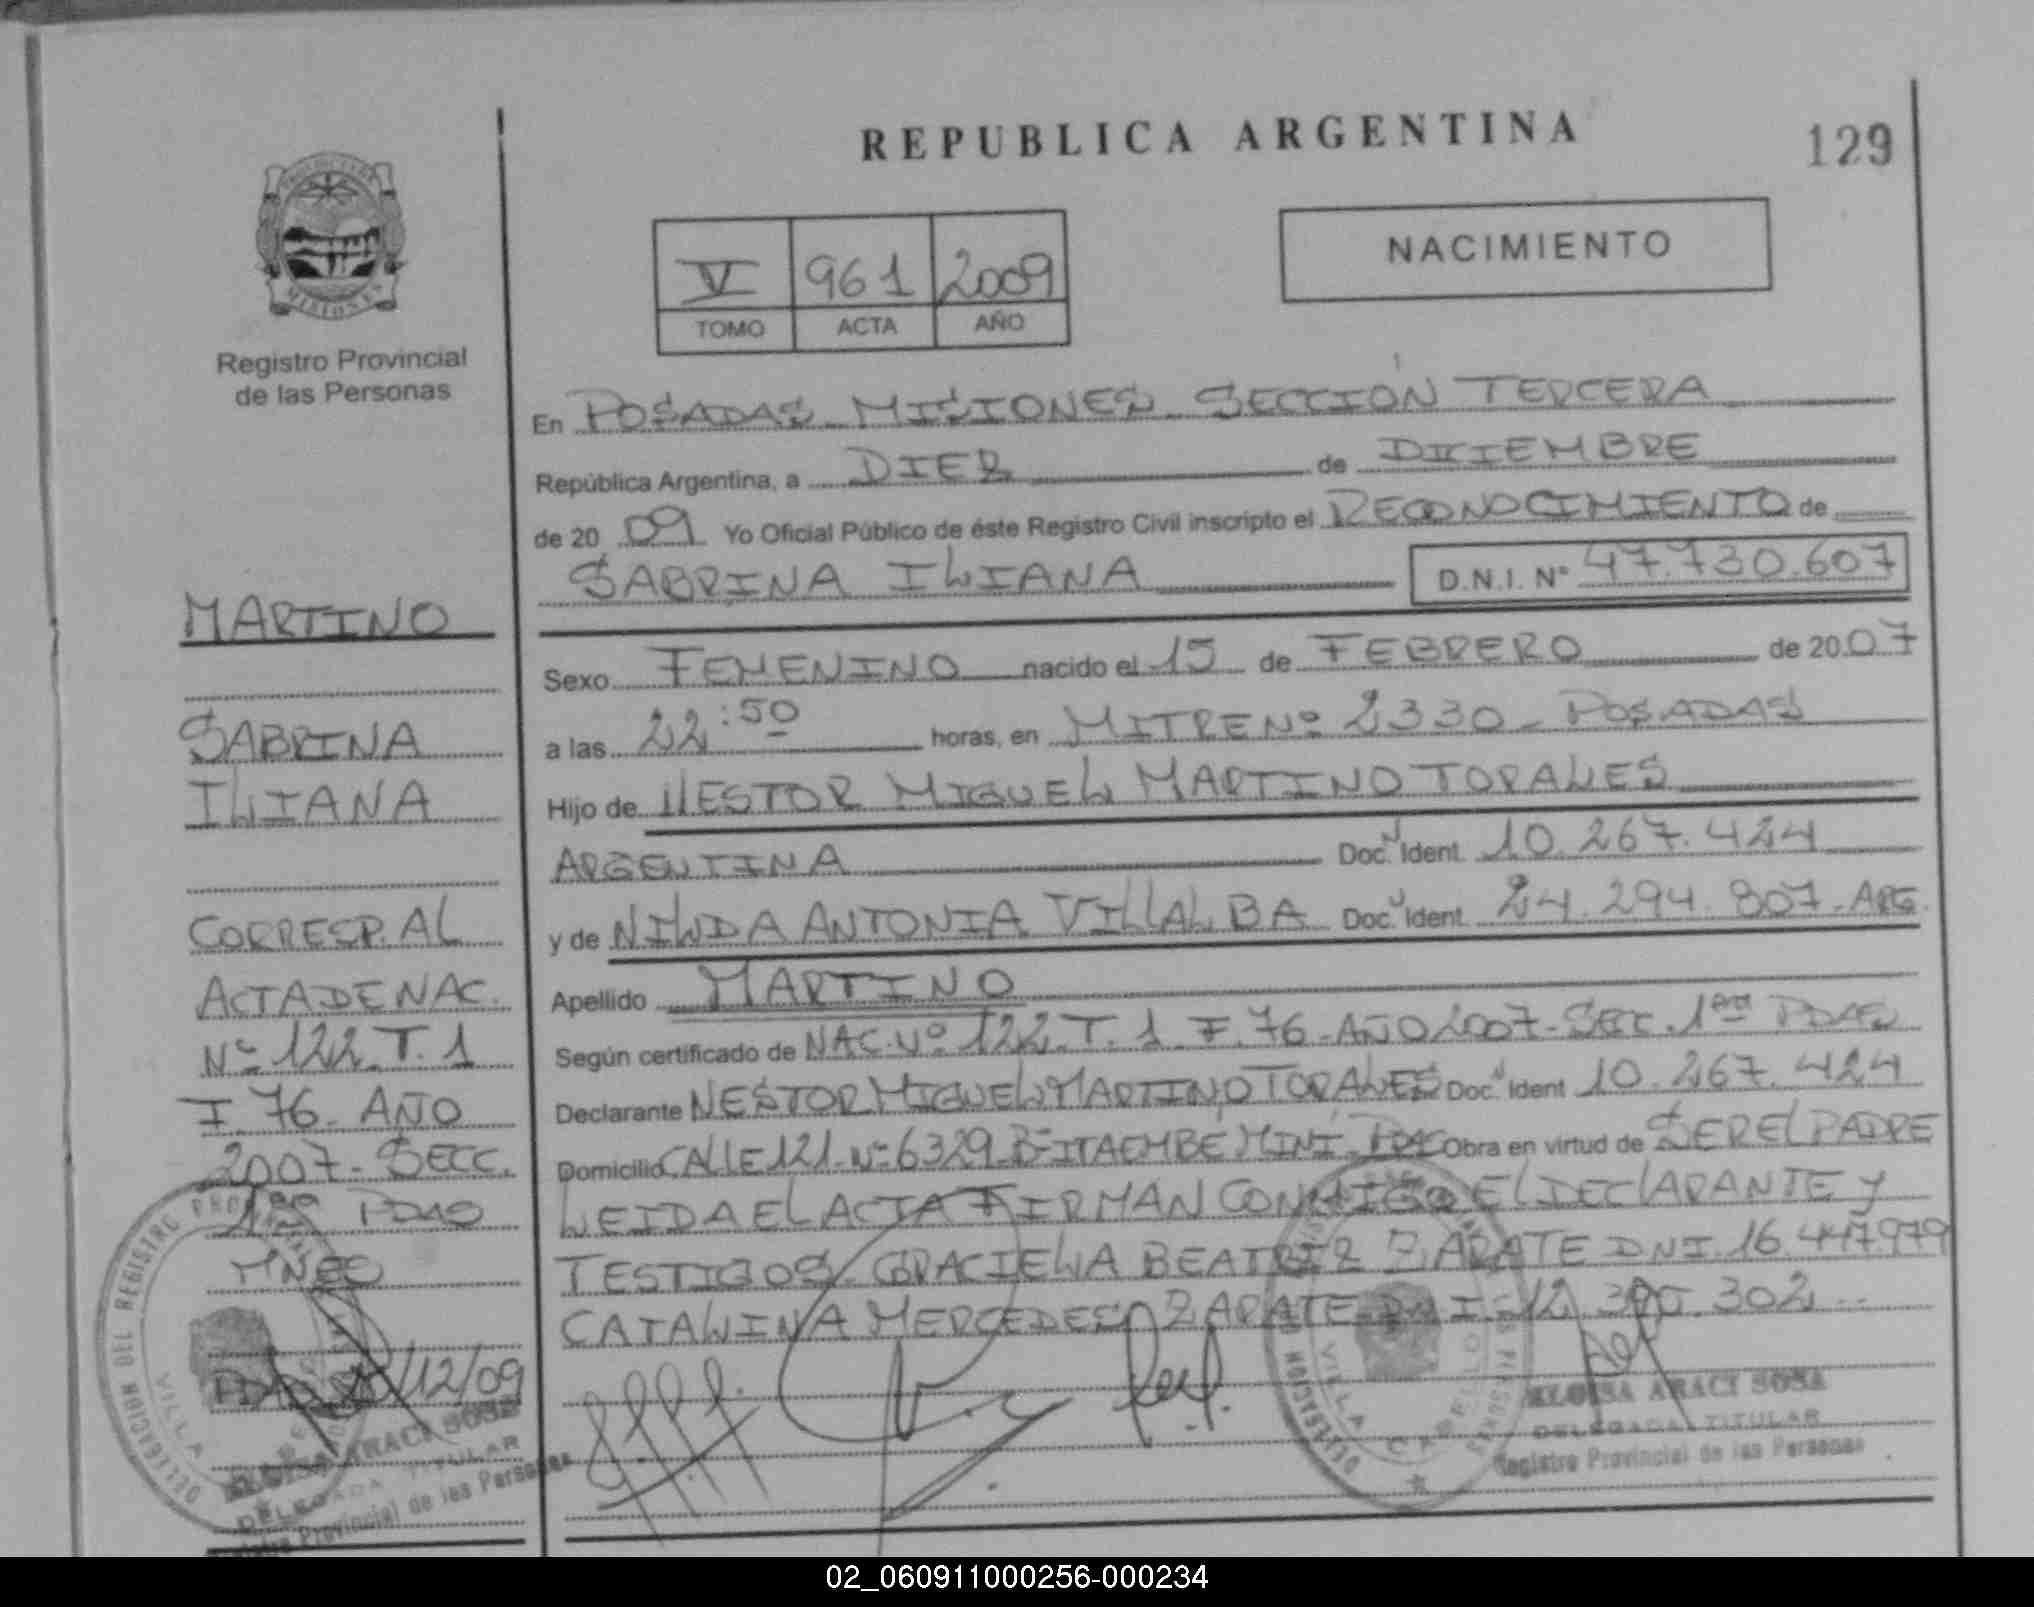 REPUBLICA ARGENTINA
129
NACIMIENTO
V 961 2009
TOMO ACTA AÑO
MISIONES
Registro Provincial
de las Personas
En POSADAS MISIONES SECCIÓN TERCERA
República Argentina, a DIEZ de DICIEMBRE
de 20 09 Yo Oficial Público de éste Registro Civil inscripto el RECONOCIMIENTO de
SABRINA ILIANA D.N.I. Nº 47.730.607
Sexo FEMENINO nacido el 15 de FEBRERO de 20 07
a las 22:50 horas, en MITRE Nº 2330 - POSADAS
Hijo de NESTOR MIGUEL MARTINO TORALES
ARGENTINA Doc. Ident. 10.267.424
y de NILDA ANTONIA VILLALBA Doc. Ident. 24.294.807 - ARG.
Apellido MARTINO
Según certificado de NAC. Nº 122 T. 1 F. 76 - AÑO 2007 - SECC. 1ra PDAS
Declarante NESTOR MIGUEL MARTINO TORALES Doc. Ident 10.267.424
Domicilio CALLE 121 - Nº 6329 Bº ITAEMBÉ MINÍ - PDAS Obra en virtud de SER EL PADRE
LEIDA EL ACTA FIRMAN CONMIGO EL DECLARANTE Y
TESTIGOS GRACIELA BEATRIZ ZARATE DNI. 16.447.979
CATALINA MERCEDES ZARATE DNI 12. 302
MARTINO
SABRINA
ILIANA
CORRESP. AL
ACTA DE NAC.
Nº 122 T. 1
F 76 - AÑO
2007 - SECC.
1ra PDAS
MNES
PDAS /12/09
DELEGACION DEL REGISTRO PROVINCIAL
VILLA CABELLO
ELOISA ARACI SOSA
DELEGADA TITULAR
Registro Provincial de las Personas
DELEGACION
VILLA CABELLO
ELOISA ARACI SOSA
DELEGADA TITULAR
Registro Provincial de las Personas
02_060911000256-000234